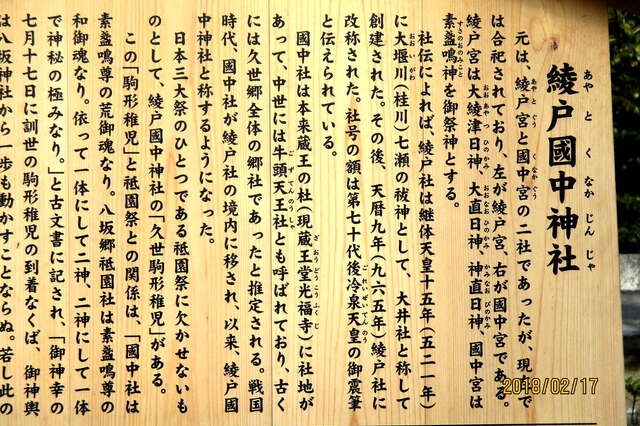 綾戸國中神社
あやとくなかじんじゃ
元は、綾戸宮と國中宮の二社であったが、現で
あやとぐう くなかぐう
は合祀されており、左が綾戸宮、右が國中宮である。
綾戸宮は大綾津日神、大直日神、神直日神、國中宮は
おおあやつひのかみ おおなおびのかみ かみなおびのかみ
素盞嗚神を御祭神とする。
すさのおのみこと
社伝によれば、綾戸社は継体天皇十五年(五二一年)
に大堰川(桂川)七瀬の祓神として、大井社と称して
おおいがわ
創建された。その後、天暦九年(九六五年)綾戸社に
改称された。社号の額は第七十代後冷泉天皇の御震筆
ごれいぜいてんのう
と伝えられている。
國中社は本来蔵王の杜(現蔵王堂光福寺)に社地が
ざおうどうこうふくじ
あって、中世には牛頭天王社とも呼ばれており、古く
ごずてんのうしゃ
には久世郷全体の郷社であったと推定される。戦国
時代、國中社が綾戸社の境内に移され、以来、綾戸國
中神社と称するようになった。
日本三大祭のひとつである祗園祭に欠かせないも
のとして、綾戸國中神社の「久世駒形稚児」がある。
この「駒形稚児」と祗園祭との関係は、「國中社は
素盞嗚尊の荒御魂なり。八坂郷祗園社は素盞嗚尊の
和御魂なり。依って一体にして二神、二神にして一体
で神秘の極みなり。」と古文書に記され、「御神幸の
七月十七日に訓世の駒形稚児の到着なくば、御神輿
は八坂神社から一歩も動かすことならぬ。若し此の
2018/02/17